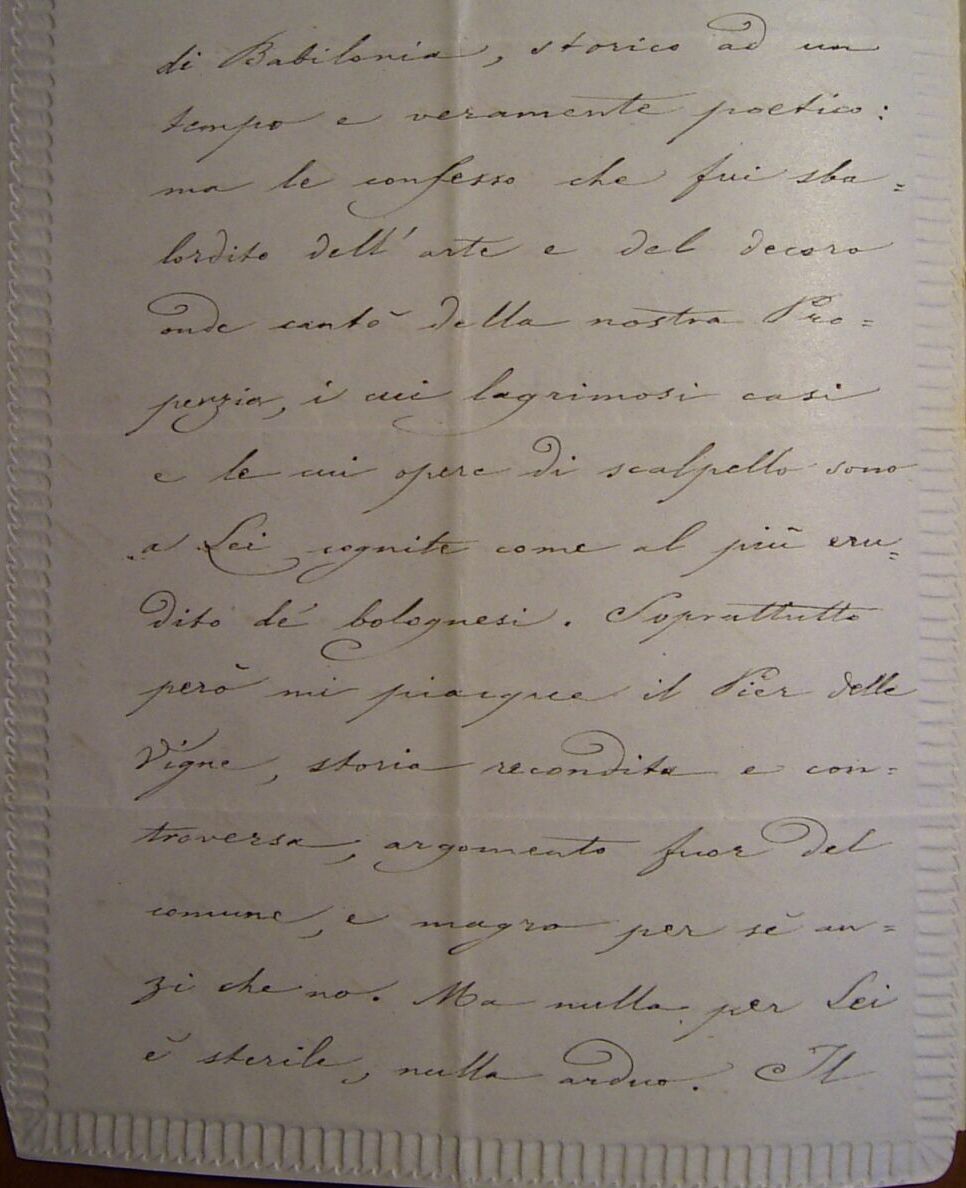 di Babilonia, storico ad un
tempo e veramente poetico:
ma le confesso che fui sba=
lordito dell'arte e del decoro
onde cantò della nostra Pro=
perzia, i cui lagrimosi casi
e le cui opere di scalpello sono
a Lei cognite come al più eru=
dito de' bolognesi. Soprattutto
però mi piacque il Pier delle
Vigne, storia recondita e con=
troversa, argomento fuor del
comune, e magro per sè an=
zi che no. Ma nulla per Lei
è sterile, nulla arduo. Il